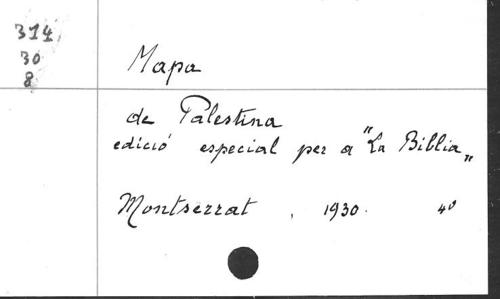 314
30
8
Mapa
de Palestina
edició especial per a "La Biblia„
Montserrat . 1930. 4º